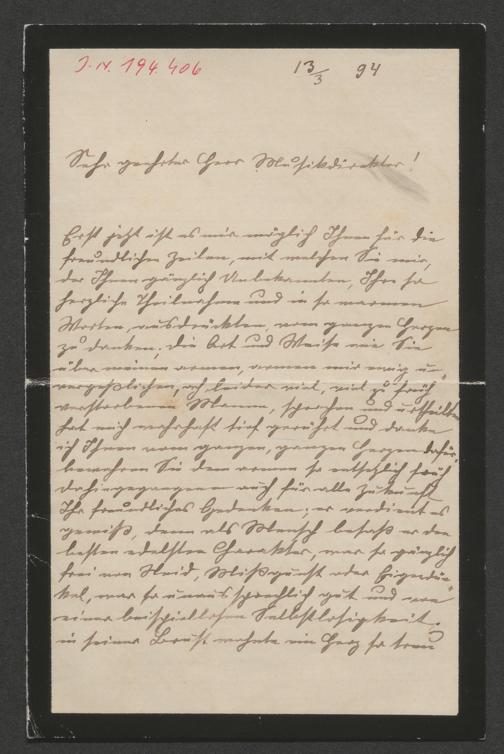 J. N. 194.406
13/3 94
Sehr geehrter Herr Musikdirektor!
Erst jetzt ist es mir möglich Ihnen für die
freundlichen Zeilen, mit welchen Sie mir,
der Ihnen gänzlich Unbekannten, Ihre so
herzliche Theilnahme und in so warmen
Worten, ausdrückten, vom ganzen Herzen
zu danken. Die Art und Weise wie Sie
über meinen armen, armen mir ewig un-
vergeßlichen, ach leider viel, viel zu früh
verstorbenen Mann, sprechen und urtheilten
hat mich wahrhaft tief gerührt und danke
ich Ihnen vom ganzen, ganzen Herzen dafür,
bewahren Sie dem armen so entsetzlich früh
Dahingegangenen auch für alle Zukunft
Ihr freundliches Gedenken; er verdient es
gewiß, denn als Mensch besaß er den
besten edelsten Charakter, war so gänzlich
frei von Neid, Mißgunst oder Eigendün-
kel, war so unaussprechlich gut und von
einer beispiellosen Selbstlosigkeit.
in seiner Brust wohnte ein Herz so treu